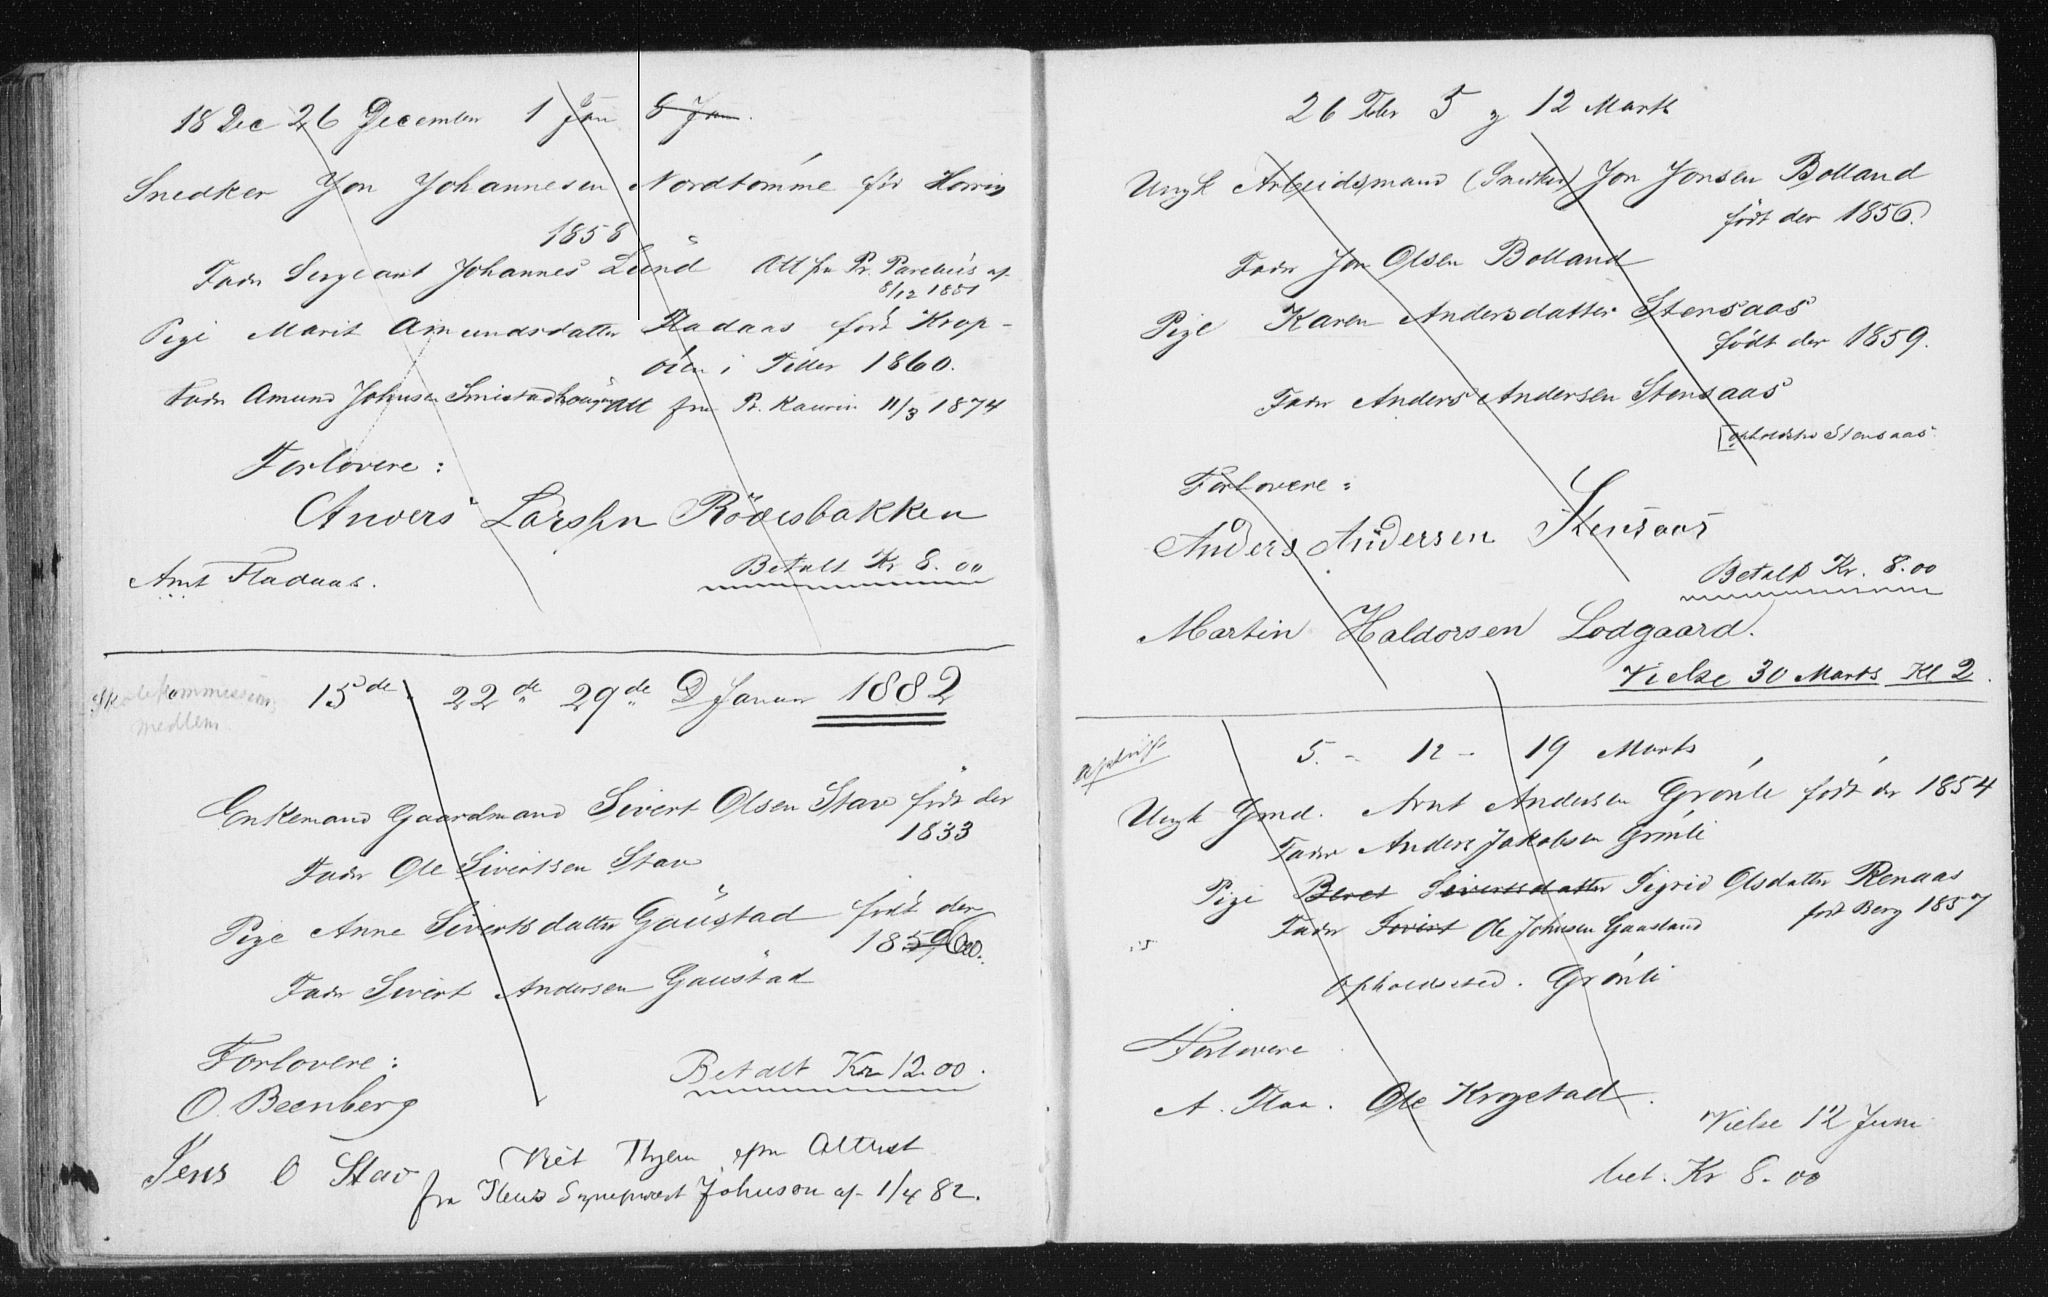 18 Dec 26 December 1 Jan 8 Jan.
Snedker Jon Johannesen Nordtømme før Horrig
1858
Fader Sergeant Johannes Lund Att fra Pr. Parelius af
8/12 1881
Pige Marit Amundsdatter Fladaas født Krop-
øien i Tiller 1860.
Fader Amund Johnsen Att fra Pr. Kaurin 11/3 1874
Forlovere:
Anders Larsen Rödesbakken
Betalt Kr 8.00
Arnt Fladaas.
Skolekommissions
medlem.
15de 22de 29de Januar 1882
Enkemand Gaardmand Sivert Olsen Stav født der
1833
Fader Ole Sivertsen Stav
Pige Anne Sivertsdatter Gaustad født der
1859 60.
Fader Sivert Andersen Gaustad
Forlovere:
Betalt Kr 12.00.
O. Beenberg
Jens O Stav
Viet efter Attest
fra Johnson af 1/4 82.
26 Febr 5 og 12 Marts
Ungk Arbeidsmand (Snedker) Jon Jonsen Bolland
født der 1856.
Fader Jon Olsen Bolland
Pige Karen Andersdatter Stensaas
født der 1859.
Fader Anders Andersen Stensaas
opholdssted Stensaas
Forlovere:
Anders Andersen Stensaas
Betalt Kr. 8.00
Martin Haldorsen Lodgaard.
Vielse 30 Marts Kl 2.
5. - 12 - 19 Marts
Ungk Gmd. Arnt Andersen Grønli født der 1854
Fader Anders Jakobsen Grønli
Pige Beret Sivertsdatter Sigrid Olsdatter Renaas
født Berg 1857
Fader Sivert Ole Johnsen Gaasland
opholdssted. Grønli
Forlovere
A. Flaa. Ole Krogstad.
Vielse 12 Juni
bet. Kr 8.00